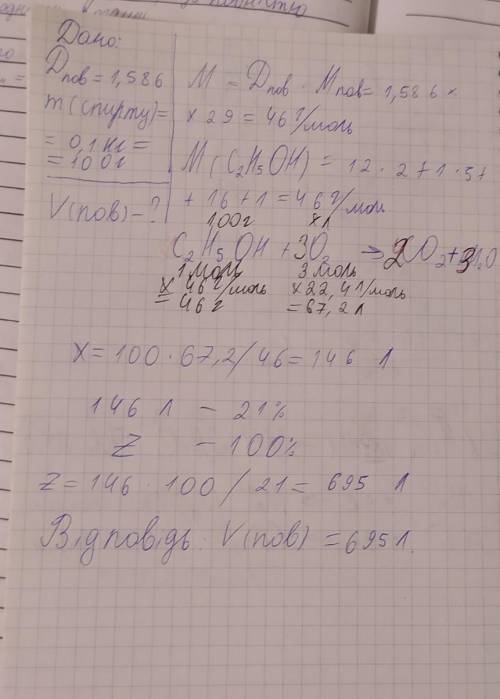 Дано:
Dпов = 1,586
m(спирту)=
= 0,1 кг =
= 100г
V(пов) - ?
M = Dпов · Mпов = 1,586 ×
× 29 = 46 г/моль
M(C₂H₅OH) = 12 · 2 + 1 · 5 +
+ 16 + 1 = 46 г/моль
100г хл
C₂H₅OH + 3O₂ → 2CO₂ + 3H₂O
1 моль 3 моль
× 46 г/моль × 22,4 л/моль
= 46 г = 67,2 л
X = 100 · 67,2 / 46 = 146 л
146 л - 21%
Z - 100%
Z = 146 · 100 / 21 = 695 л
Відповідь: V(пов) = 695 л.